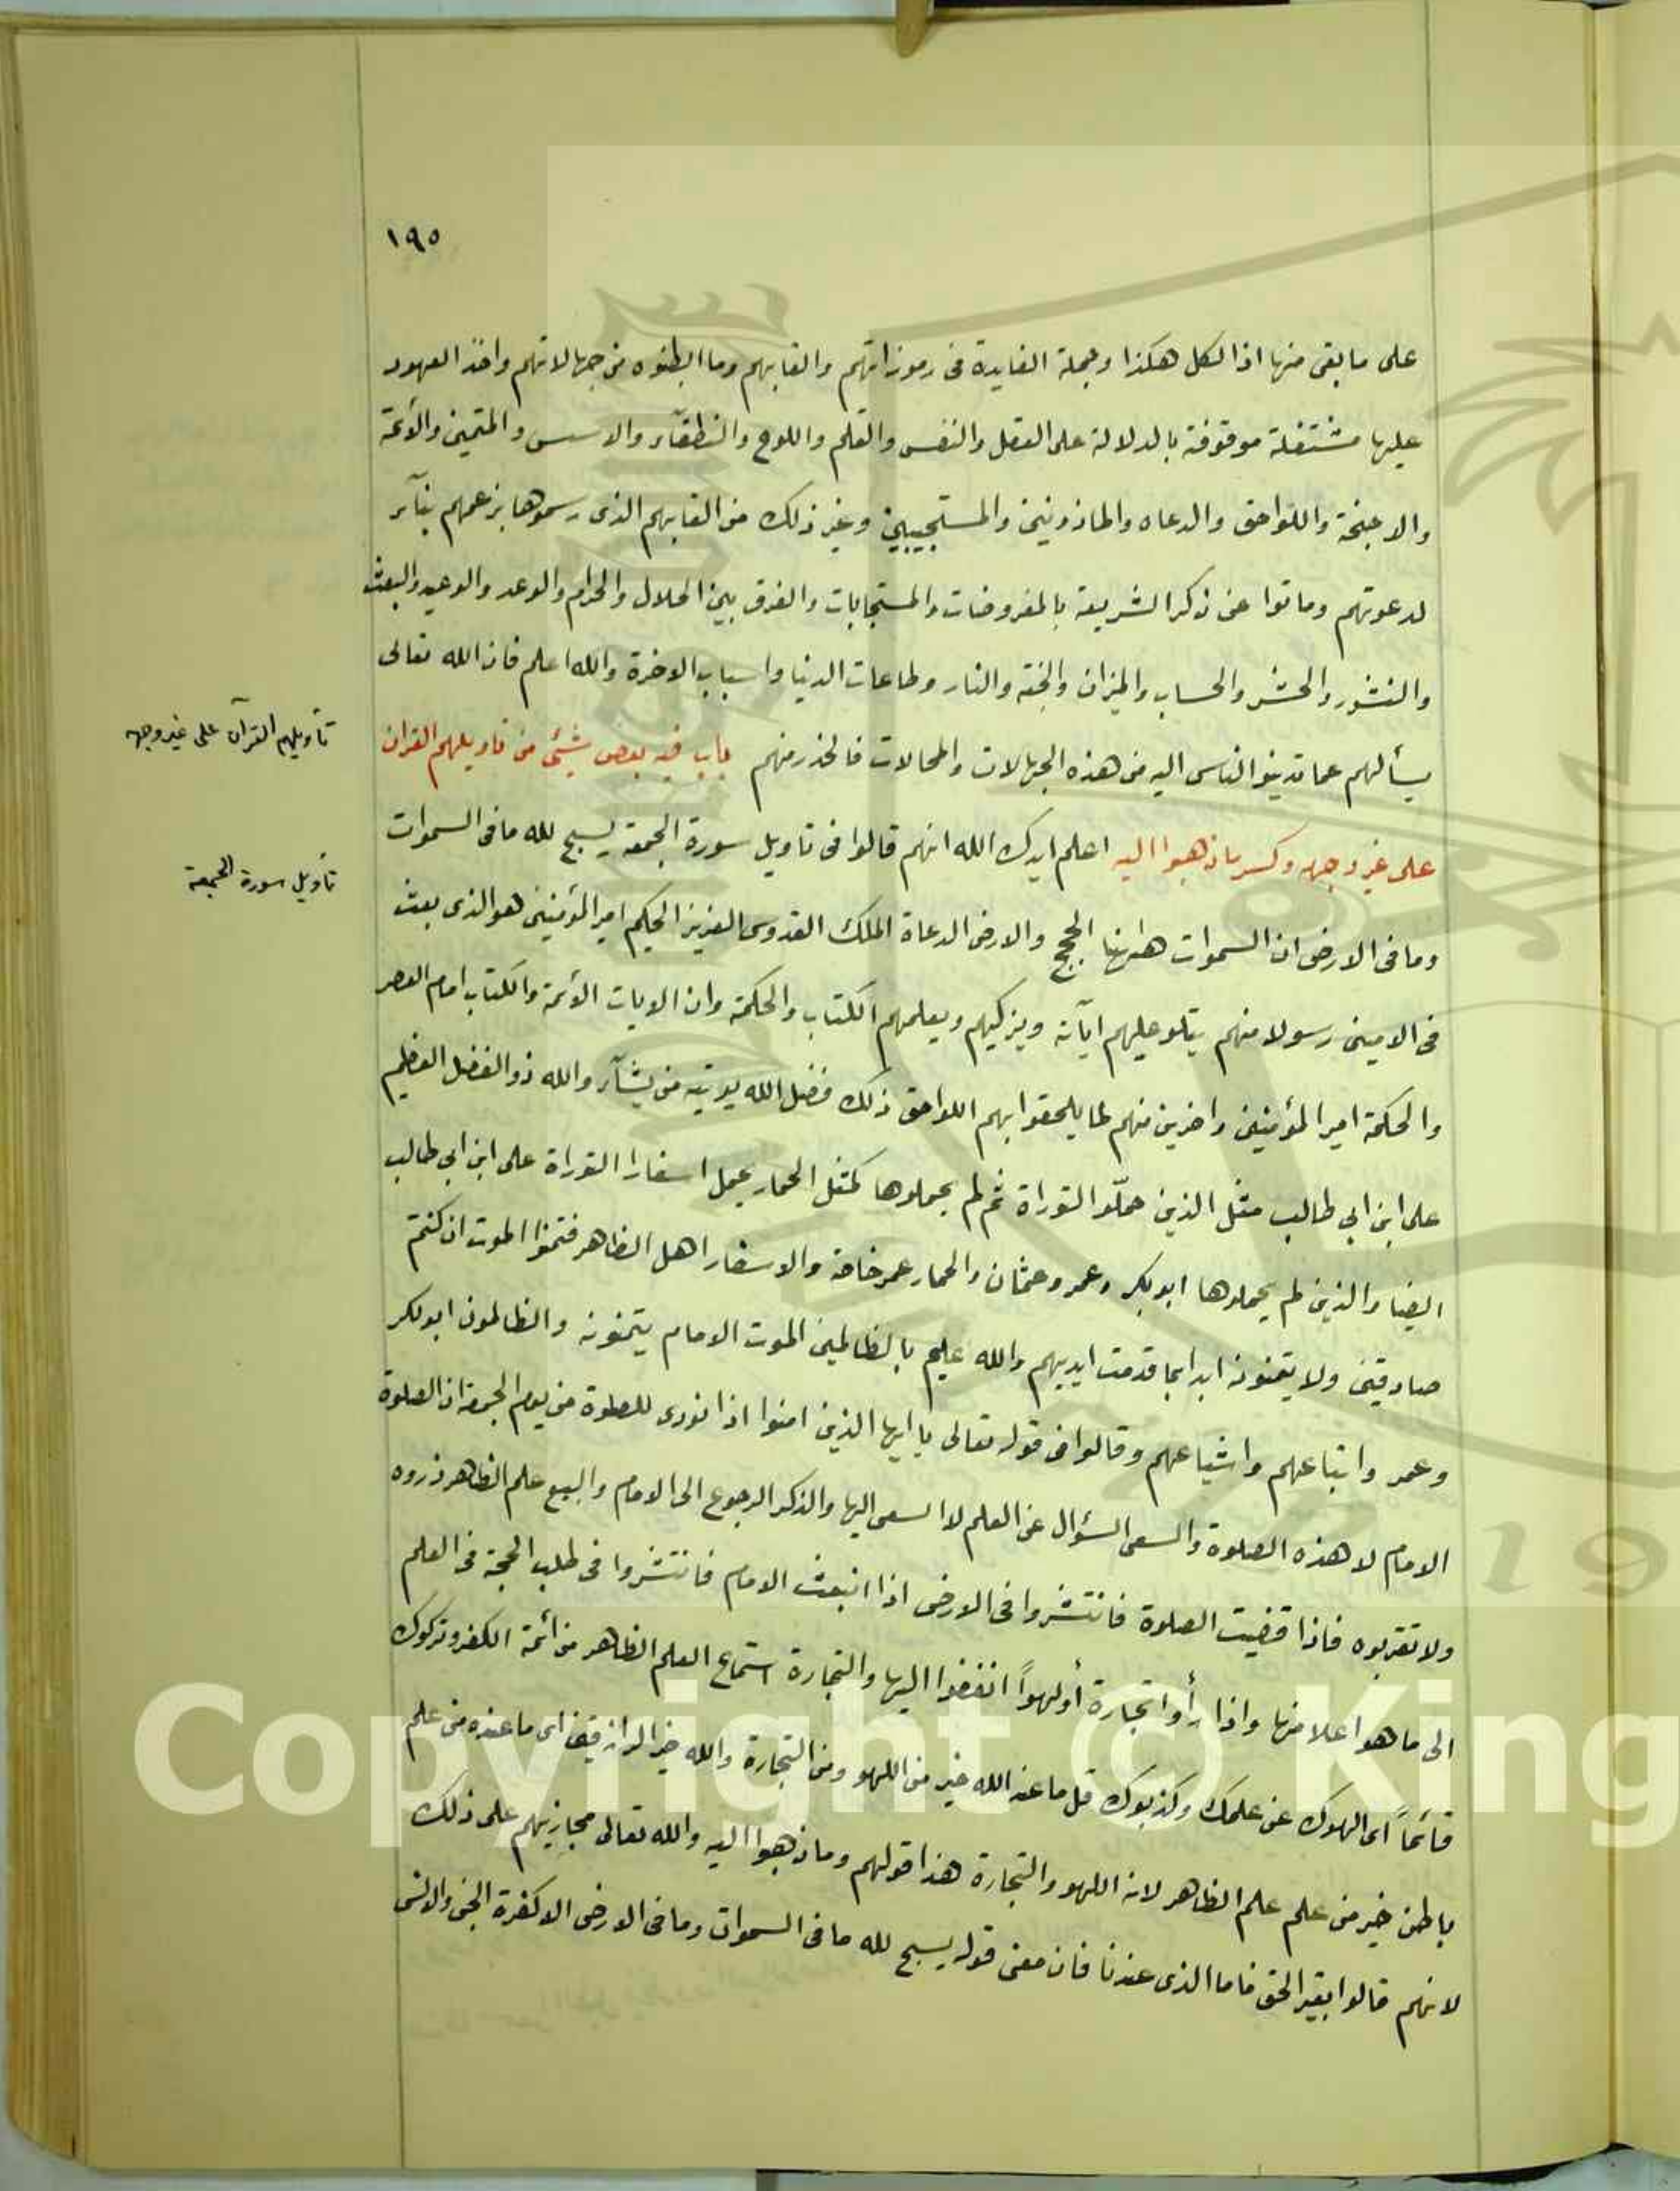 ١٩٥
على ما بقى منها اذا لكل هكذا وجملة الفايدة فى رموزاتهم والقابهم وما ابطنوه من جهالاتهم واخذ العهود
عليها مشتغلة موقوفة بالدلالة على العقل والنفس والقلم واللوح والنطقآء والاسس والمتمين والأئمة
والاجنحة واللواحق والدعاه والماذونين والمستجيبين وغير ذلك من القابهم الذى رسموها بزعمهم بنآء
لدعوتهم وماتوا عن ذكر الشريعة بالمفروضات والمستجابات والفرق بين الحلال والحرام والوعد والوعيد والبعث
والنشور والحشر والحساب والميزان والجنة والنار وطاعات الدنيا واسباب الاخرة والله اعلم فان الله تعالى
يسألهم عما تدينوا الناس اليه من هذه الجهالات والمحالات فالحذر منهم باب فيه بعض شيئ من تاويلهم القران
تأويلهم القرآن على غير وجهه
على غير وجهه وكسر ما ذهبوا اليه اعلم ايدك الله انهم قالوا فى تاويل سورة الجمعة يسبح لله ما فى السموات
تأويل سورة الجمعة
وما فى الارض ان السموات هاهنا الحجج والارض الدعاة الملك القدوس العزيز الحكيم امير المؤمنين هو الذى بعث
فى الاميين رسولا منهم يتلو عليهم ايآته ويزكيهم ويعلمهم الكتاب والحكمة وان الايات الأئمة والكتاب امام العصر
والحكمة امير المؤمنين واخرين منهم لما يلحقوا بهم اللواحق ذلك فضل الله يوتيه من يشآء والله ذو الفضل العظيم
على ابن ابي طالب مثل الذين حمّلو التوراة ثم لم يحملوها كمثل الحمار يحمل اسفارا التوراة على ابن ابي طالب
ايضا والذين لم يحملوها ابو بكر وعمر وعثمان والحمار عمر خاصة والاسفار اهل الظاهر فتمنوا الموت ان كنتم
صادقين ولا يتمنونه ابدا بما قدمت ايديهم والله عليم بالظالمين الموت الامام يتمنونه والظالمون ابو بكر
وعمر واتباعهم واشياعهم وقالوا فى قوله تعالى يا ايها الذين امنوا اذا نودى للصلوة من يوم الجمعة ان الصلوة
الامام لا هذه الصلوة والسعى السؤال عن العلم لا السعى اليها والذكر الرجوع الى الامام والبيع علم الظاهر ذروه
ولا تقربوه فاذا قضيت الصلوة فانتشروا فى الارض اذا انبعث الامام فانتشروا فى طلب الحجة فى العلم
الى ما هو اعلا منها واذا رأوا تجارة أو لهواً انفضوا اليها والتجارة استماع العلم الظاهر من ائمة الكفر وتركوك
قائماً اى الهوك عن علمك وكذبوك قل ما عند الله خير من اللهو ومن التجارة والله خير الرازقين اى ما عنده من علم
باطن خير من علم علم الظاهر لانه اللهو والتجارة هذا قولهم وما ذهبوا اليه والله تعالى مجازيهم على ذلك
لانهم قالوا بغير الحق فاما الذى عندنا فان معنى قوله يسبح لله ما فى السموات وما فى الارض الا كفرة الجن والانس
Copyright © King
19